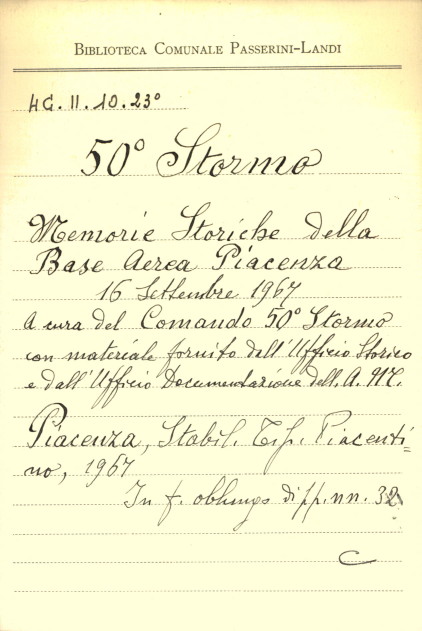 BIBLIOTECA COMUNALE PASSERINI-LANDI
4G. II. 10. 23°
50° Stormo
Memorie Storiche della
Base Aerea Piacenza
16 Settembre 1967
A cura del Comando 50° Stormo
con materiale fornito dall'Ufficio Storico
e dall'Ufficio Documentazione dell. A. M.
Piacenza, Stabil. Tip. Piacenti=
no, 1967
In f. oblungo di pp. nn. 32
C